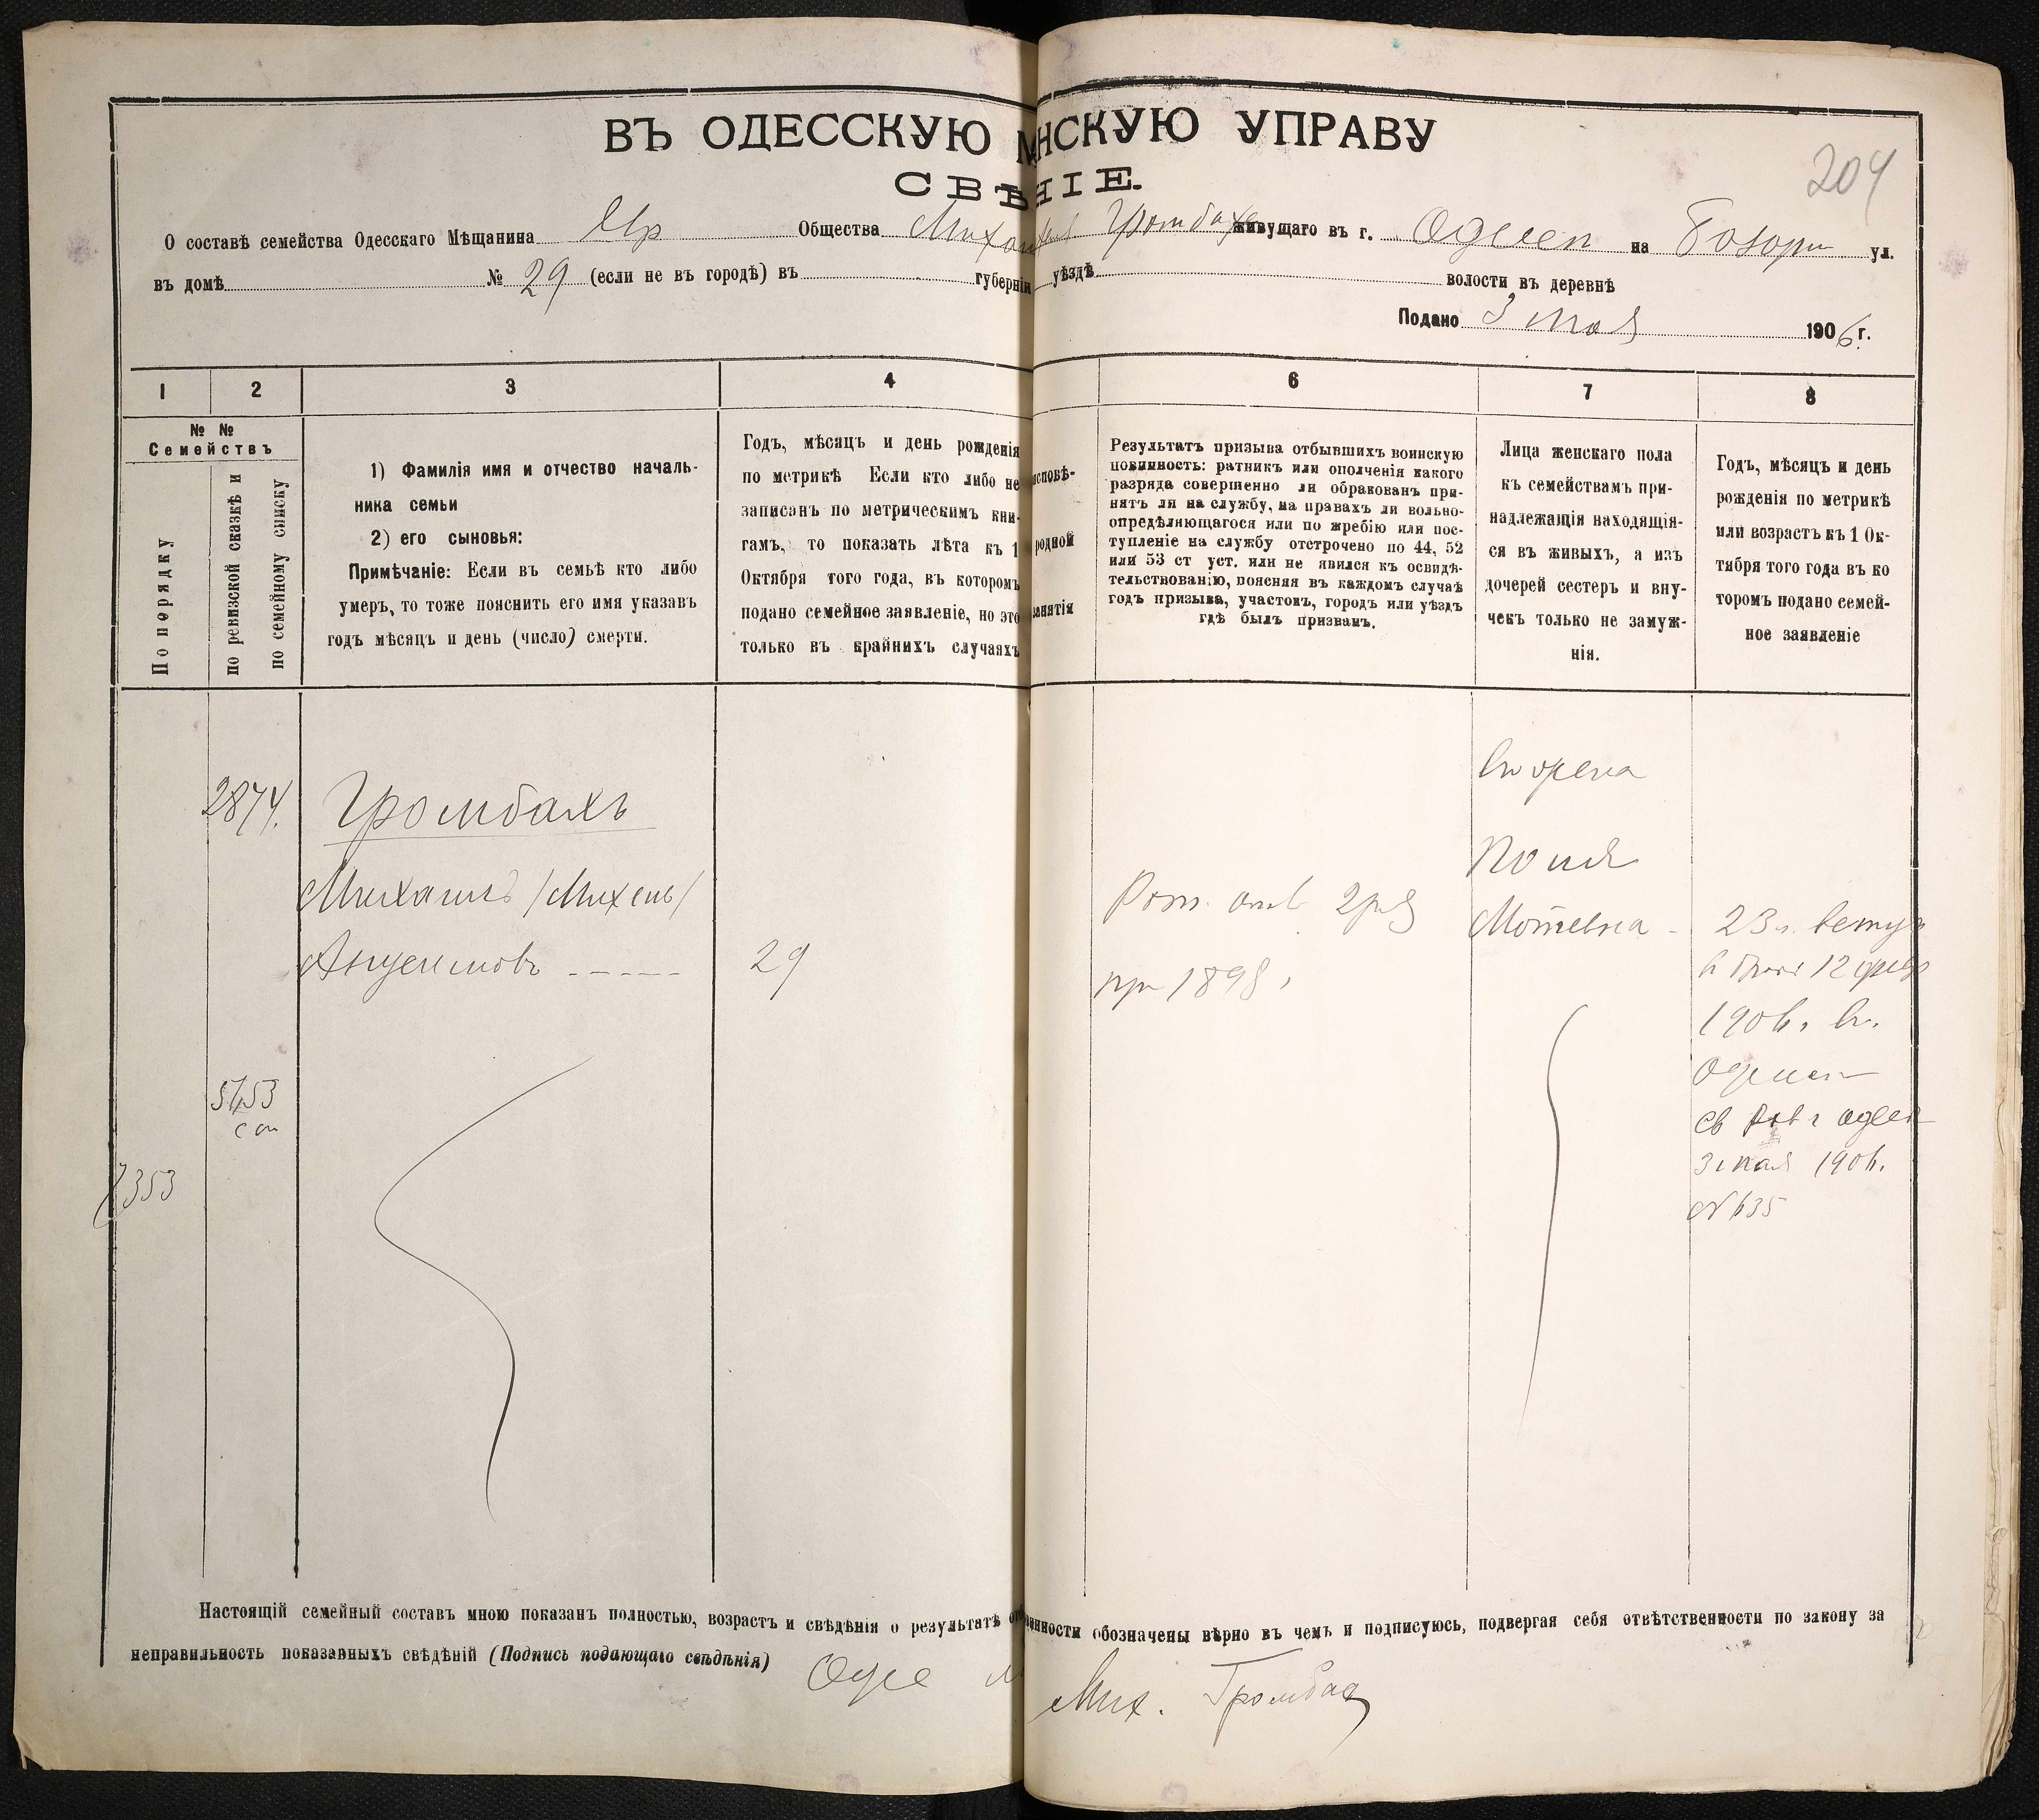 204
ВЪ ОДЕССКУЮ НСКУЮ УПРАВУ
СВѢ НІЕ.
О составѣ семейства Одесскаго Мѣщанина Евр Общества Михаил Громбахъ живущаго въ г. Одессѣ на Базарн ул.
въ домѣ № 29 (если не въ городѣ) въ губерніи уѣздѣ волости въ деревнѣ
Подано 3 мая 1906 г.
1 2 3 4 6 7 8
№ №
Семействъ
По порядку
по ревизской сказкѣ и
по семейному списку
1) Фамилія имя и отчество началь-
ника семьи
2) его сыновья:
Примѣчаніе: Если въ семьѣ кто либо
умеръ, то тоже пояснить его имя указавъ
годъ мѣсяцъ и день (число) смерти.
Годъ, мѣсяцъ и день рожденія
по метрикѣ Если кто либо не
записанъ по метрическимъ кни-
гамъ, то показать лѣта къ 1
Октября того года, въ которомъ
подано семейное заявленіе, но это
только въ крайнихъ случаяхъ
исповѣ-
родной
занятія
Результатъ призыва отбывшихъ воинскую
повинность: ратникъ или ополченія какого
разряда совершенно ли обракованъ при-
нятъ ли на службу, на правахъ ли вольно-
опредѣляющагося или по жребію или пос-
тупленіе на службу отстрочено по 44, 52
или 53 ст уст. или не явился къ освидѣ-
тельствованію, поясняя въ каждомъ случаѣ
годъ призыва, участокъ, городъ или уѣздъ
гдѣ былъ призванъ.
Лица женскаго пола
къ семействамъ при-
надлежащія находящія-
ся въ живыхъ, а изъ
дочерей сестеръ и вну-
чекъ только не замуж-
нія.
Годъ, мѣсяцъ и день
рожденія по метрикѣ
или возрастъ къ 1 Ок-
тября того года въ ко
торомъ подано семей-
ное заявленіе
2874.
Громбахъ
Михаилъ /Михель/
29
5453
7353
Рат. опол. 2 раз
пр 1898
жена
Мотевна
23 л. вступ
в бракъ 12 февр
1906. в.
Одессѣ
св одес
3 мая 1906.
№ 635
Настоящій семейный составъ мною показанъ полностью, возрастъ и свѣдѣнія о результатѣ от инности обозначены вѣрно въ чемъ и подписуюсь, подвергая себя отвѣтственности по закону за
неправильность показанныхъ свѣдѣній (Подпись подающаго свѣдѣнія) Одес м Мих. Громбах